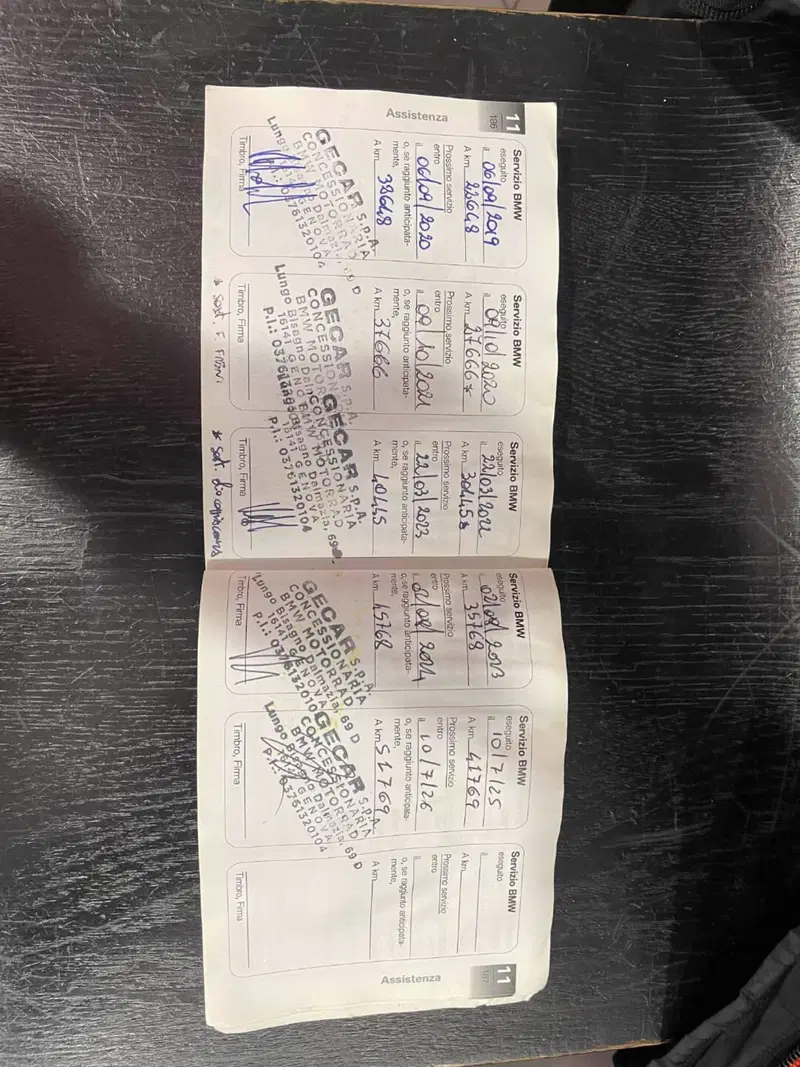 11
196
Assistenza
Servizio BMW
eseguito
il 06/09/2019
A km 28648
Prossimo servizio
entro
il 06/09/2020
o, se raggiunto anticipata-
mente,
A km 38648
GECAR S.p.A.
CONCESSIONARIA
BMW MOTORRAD
Lungo Dalmazia, 69 D
GENOVA
03761320104
Timbro, Firma
Servizio BMW
eseguito
il 09/10/2020
A km 27666*
Prossimo servizio
entro
il 09/10/2021
o, se raggiunto anticipata-
mente,
A km 37666
GECAR S.p.A.
CONCESSIONARIA
BMW MOTORRAD
Lungo Bisagno Dalmazia
16141 GENOVA
P.I.: 03761320104
Timbro, Firma
* sost. F.
Servizio BMW
eseguito
il 22/03/2022
A km 30445*
Prossimo servizio
entro
il 22/03/2023
o, se raggiunto anticipata-
mente,
A km 40445
GECAR S.p.A.
CONCESSIONARIA
BMW MOTORRAD
Lungo Bisagno Dalmazia, 69
16141 GENOVA
P.I.: 03761320104
Timbro, Firma
* sost.
Servizio BMW
eseguito
il 02/08/2023
A km 35768
Prossimo servizio
entro
il 02/08/2024
o, se raggiunto anticipata-
mente,
A km 45768
GECAR S.p.A.
CONCESSIONARIA
BMW MOTORRAD
Lungo Bisagno Dalmazia, 69 D
16141 GENOVA
P.I.: 03761320104
Timbro, Firma
Servizio BMW
eseguito
il 10/7/25
A km 41769
Prossimo servizio
entro
il 10/7/26
o, se raggiunto anticipata-
mente,
A km 51769
GECAR S.p.A.
CONCESSIONARIA
BMW MOTORRAD
Lungo Bisagno Dalmazia, 69 D
GENOVA
P.I.: 03761320104
Timbro, Firma
Servizio BMW
eseguito
il
A km
Prossimo servizio
entro
il
o, se raggiunto anticipata-
mente,
A km
Timbro, Firma
11
197
Assistenza